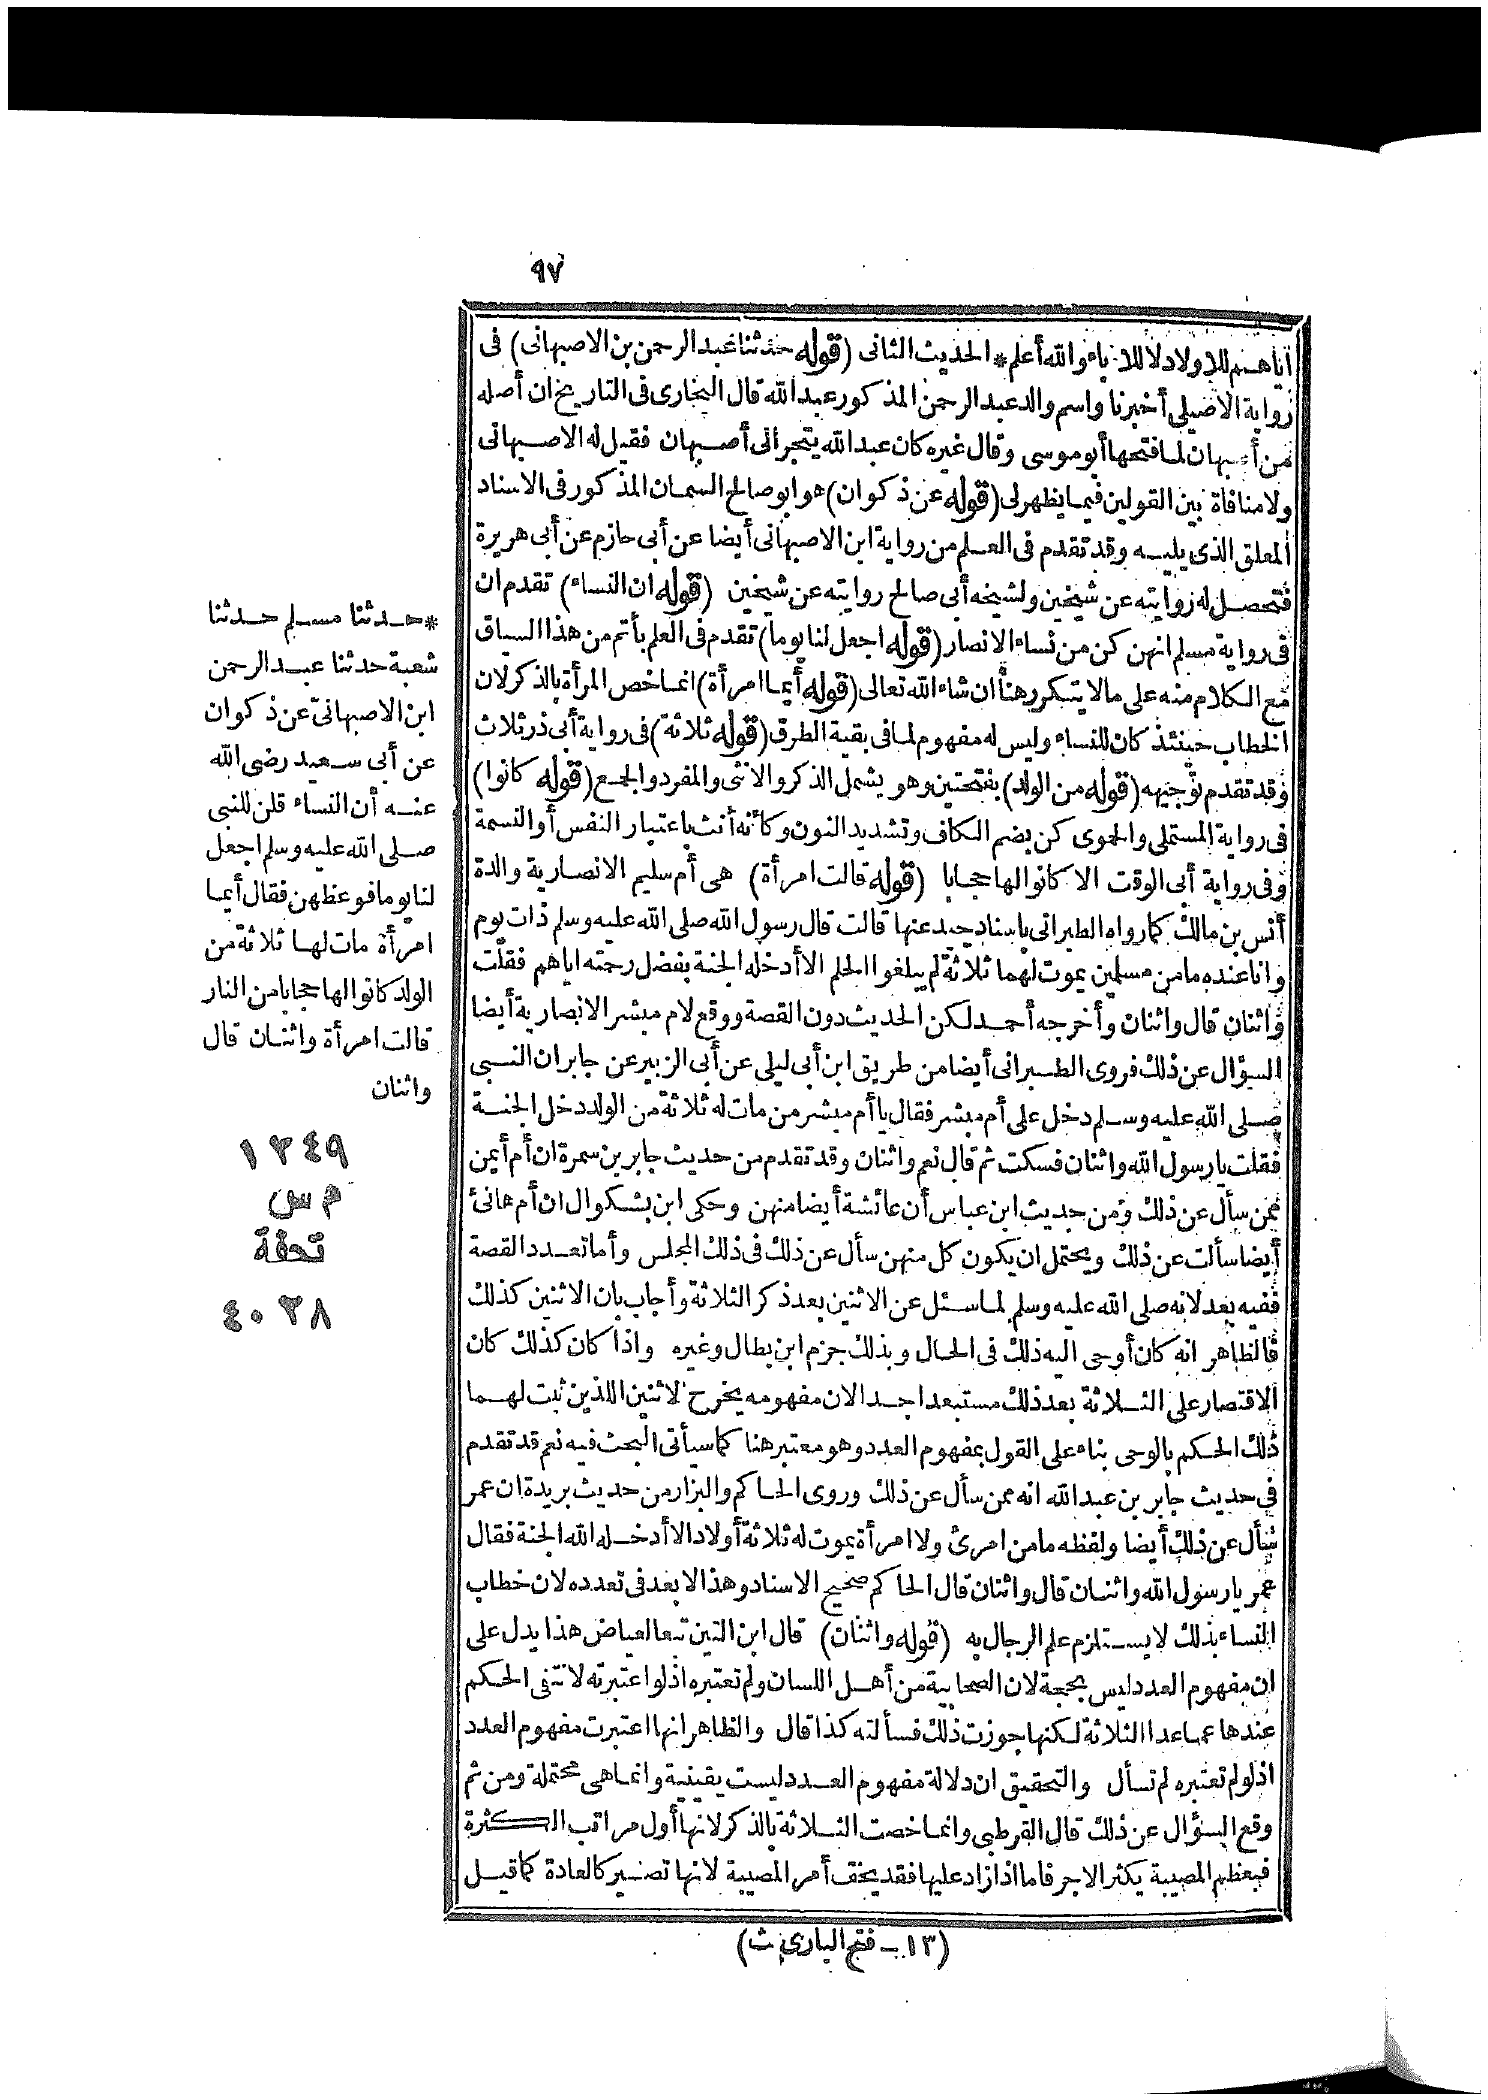 ٩٧
اياهم للاولاد لا للآباء والله أعلم * الحديث الثانى (قوله حدثنا عبد الرحمن بن الاصبهانى) فى
رواية الاصيلى أخبرنا واسم والد عبد الرحمن المذكور عبد الله قال البخارى فى التاريخ ان أصله
من أصبهان لما فتحها أبو موسى وقال غيره كان عبد الله يتجر الى أصبهان فقيل له الاصبهانى
ولا منافاة بين القولين فيما يظهر لى (قوله عن ذكوان) هو ابو صالح السمان المذكور فى الاسناد
المعلق الذى يليه وقد تقدم فى العلم من رواية ابن الاصبهانى أيضا عن أبى حازم عن أبى هريرة
فتحصل له روايته عن شيخين ولشيخه أبى صالح روايته عن شيخين (قوله ان النساء) تقدم ان
فى رواية مسلم انهن كن من نساء الانصار (قوله اجعل لنا يوما) تقدم فى العلم بأتم من هذا السياق
مع الكلام منه على ما لا يتكرر هنا ان شاء الله تعالى (قوله أيما امرأة) انما خص المرأة بالذكر لان
الخطاب حينئذ كان للنساء وليس له مفهوم لما فى بقية الطرق (قوله ثلاثة) فى رواية أبى ذر ثلاث
وقد تقدم توجيهه (قوله من الولد) بفتحتين وهو يشمل الذكر والانثى والمفرد والجمع (قوله كانوا)
فى رواية المستملى والحموى كن بضم الكاف وتشديد النون وكأنه أنث باعتبار النفس أو النسمة
وفى رواية أبى الوقت الا كانوا لها حجابا (قوله قالت امرأة) هى أم سليم الانصارية والدة
أنس بن مالك كما رواه الطبرانى باسناد جيد عنها قالت قال رسول الله صلى الله عليه وسلم ذات يوم
وانا عنده ما من مسلمين يموت لهما ثلاثة لم يبلغوا الحلم الا أدخله الجنة بفضل رحمته اياهم فقلت
واثنان قال واثنان وأخرجه أحمد لكن الحديث دون القصة ووقع لام مبشر الانصارية أيضا
السؤال عن ذلك فروى الطبرانى أيضا من طريق ابن أبى ليلى عن أبى الزبير عن جابر ان النبى
صلى الله عليه وسلم دخل على أم مبشر فقال يا أم مبشر من مات له ثلاثة من الولد دخل الجنة
فقلت يا رسول الله واثنان فسكت ثم قال نعم واثنان وقد تقدم من حديث جابر بن سمرة ان أم أيمن
ممن سأل عن ذلك ومن حديث ابن عباس أن عائشة أيضا منهن وحكى ابن بشكوال ان أم هانئ
أيضا سألت عن ذلك ويحتمل ان يكون كل منهن سأل عن ذلك فى ذلك المجلس وأما تعدد القصة
ففيه بعد لانه صلى الله عليه وسلم لما سئل عن الاثنين بعد ذكر الثلاثة وأجاب بان الاثنين كذلك
فالظاهر انه كان أوحى اليه ذلك فى الحال وبذلك جزم ابن بطال وغيره واذا كان كذلك كان
الاقتصار على الثلاثة بعد ذلك مستبعدا جدا لان مفهومه يخرج الاثنين اللذين ثبت لهما
ذلك الحكم بالوحى بناء على القول بمفهوم العدد وهو معتبر هنا كما سيأتى البحث فيه نعم قد تقدم
فى حديث جابر بن عبد الله انه ممن سأل عن ذلك وروى الحاكم والبزار من حديث بريدة ان عمر
سأل عن ذلك أيضا ولفظه ما من امرئ ولا امرأة يموت له ثلاثة أولاد الا أدخله الله الجنة فقال
عمر يا رسول الله واثنان قال واثنان قال الحاكم صحيح الاسناد وهذا لا بعد فى تعدده لان خطاب
النساء بذلك لا يستلزم علم الرجال به (قوله واثنان) قال ابن التين تبعا لعياض هذا يدل على
ان مفهوم العدد ليس بحجة لان الصحابية من أهل اللسان ولم تعتبره اذ لو اعتبرته لانتفى الحكم
عندها عما عدا الثلاثة لكنها جوزت ذلك فسألته كذا قال والظاهر انها اعتبرت مفهوم العدد
اذ لو لم تعتبره لم تسأل والتحقيق ان دلالة مفهوم العدد ليست يقينية وانما هى محتملة ومن ثم
وقع السؤال عن ذلك قال القرطبى وانما خصت الثلاثة بالذكر لانها أول مراتب الكثرة
فبعظم المصيبة يكثر الاجر فاما اذا زاد عليها فقد يخف أمر المصيبة لانها تصير كالعادة كما قيل
* حدثنا مسلم حدثنا
شعبة حدثنا عبد الرحمن
ابن الاصبهانىّ عن ذكوان
عن أبى سعيد رضى الله
عنه أن النساء قلن للنبى
صلى الله عليه وسلم اجعل
لنا يوما فوعظهن فقال أيما
امرأة مات لها ثلاثة من
الولد كانوا لها حجابا من النار
قالت امرأة واثنان قال
واثنان
١٢٤٩
م س
تحفة
٤٠٢٨
(١٣ - فتح البارى ث)